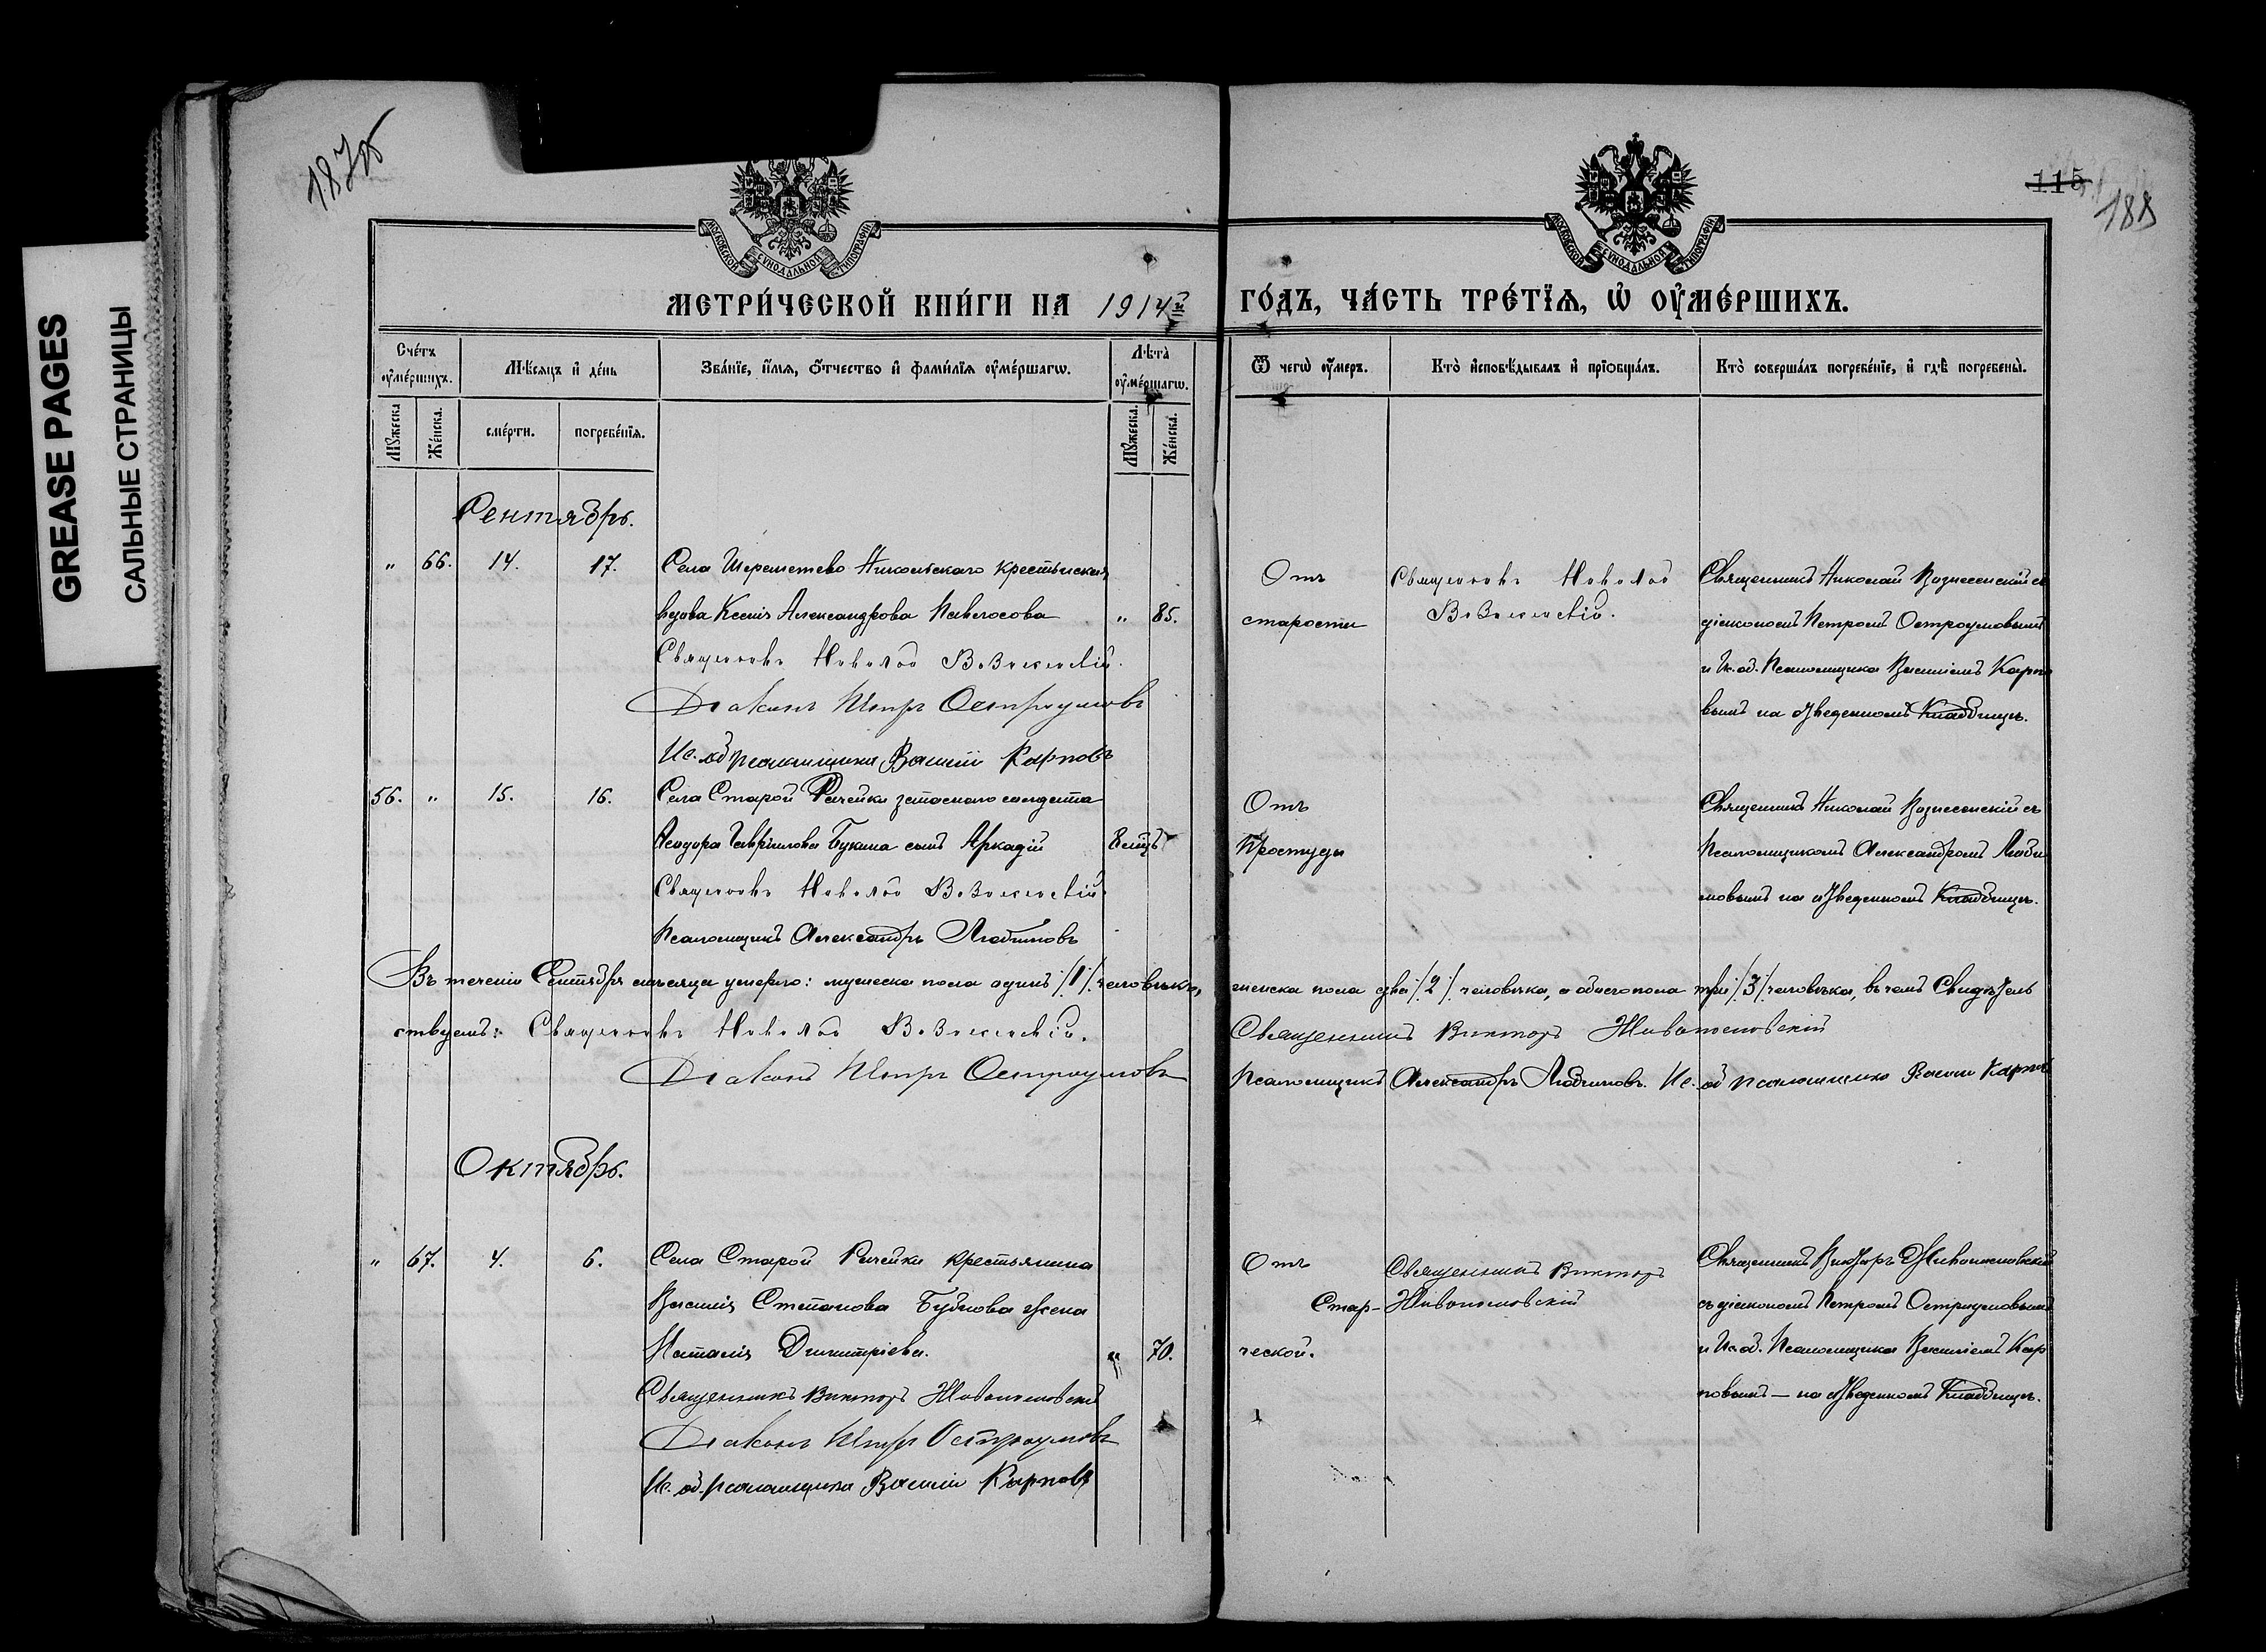 GREASE PAGES
САЛЬНЫЕ СТРАНИЦЫ
187об
115
188
МОСКОВСКОЙ СѴНОДАЛЬНОЙ ТИПОГРАФІИ
МОСКОВСКОЙ СѴНОДАЛЬНОЙ ТИПОГРАФІИ
МЕТРИ́ЧЕСКОЙ КНИ́ГИ НА 1914й ГО́ДЪ, ЧА́СТЬ ТРЕ́ТЇѦ, Ѡ҆ ОУ҆МЕ́РШИХЪ.
Сче́тъ оу҆ме́ршихъ.
Мѣ́сяцъ и҆ де́нь
Зва́нїе, и҆́мѧ, ѻ҆́тчество и҆ фами́лїѧ оу҆ме́ршагѡ.
Лѣ́та оу҆ме́ршагѡ.
Ѿ чегѡ̀ оу҆́меръ.
Кто̀ и҆сповѣ́дывалъ и҆ прїѡбща́лъ.
Кто̀ соверша́лъ погребе́нїе, и҆ гдѣ̀ погребены̀.
Мꙋ́жеска
Же́нска.
сме́рти.
погребе́нїѧ.
Мꙋ́жеска.
Же́нска.
Сентябрь.
" 66. 14. 17. Села Шереметево Никольскаго крестьянская
вдова Ксенія Александрова " 85.
Священникъ Николай Вознесенскій.
Діаконъ Петръ Остроумовъ
Ис. об псаломщика Василій Карповъ
Отъ
старости
Священникъ Николай
Вознесенскій.
Священникъ Николай Вознесенскій съ
діакономъ Петромъ Остроумовымъ
и Ис. об. Псаломщика Василіемъ Карпо
вымъ на отведенномъ Кладбищѣ.
56. " 15. 16. Села Старой Рачейки запаснаго солдата
Ѳеодора Гавріилова Букина сынъ Аркадій 8 мцъ
Священникъ Николай Вознесенскій.
Псаломщикъ Александръ Любимовъ
Отъ
Простуды
Священникъ Николай Вознесенскій съ
Псаломщикомъ Александромъ Люби
мовымъ на отведенномъ Кладбищѣ.
Въ теченіи Сентября мѣсяца умерло: мужеска пола одинъ /1/ человѣкъ, женска пола два /2/ человѣка, а обоего пола три /3/ человѣка, въ чемъ Свидѣтель
ствуемъ: Священникъ Николай Вознесенскій. Священникъ Викторъ Живописовскій
Діаконъ Петръ Остроумовъ Псаломщикъ Александръ Любимовъ. Ис. об псаломщика Василій Карповъ
Октябрь.
" 67. 4. 6. Села Старой Рачейки крестьянина
Василія Степанова Бубнова жена
Наталія Димитріева. " 70.
Священникъ Викторъ Живописовскій
Діаконъ Петръ Остроумовъ
Ис. об. псаломщика Василій Карповъ
Отъ
Стар-
ческой.
Священникъ Викторъ
Живописовскій
Священникъ Викторъ Живописовскій
съ діакономъ Петромъ Остроумовымъ
и Ис. об. Псаломщика Василіемъ Кар
повымъ — на отведенномъ Кладбищѣ.